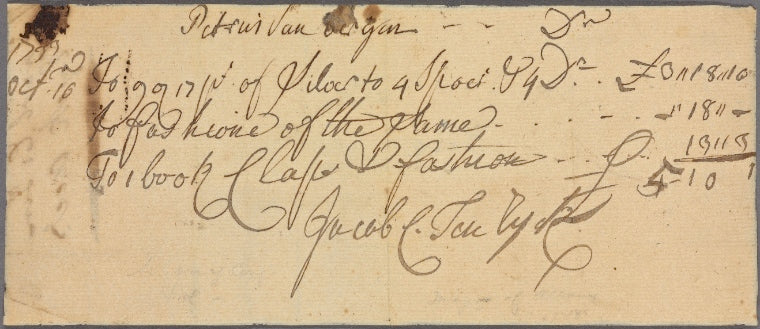 Petrus Van Bergen - - Dr
Oct 16 To 9 9 17 p of Silver to 9 Spoo: & 9 Dr. £3 " 18 " 10
to fashione of the Same - 18 " -
To 1 book Clasp & fashion 13 " 3
£ 5 - 10 1
Jacob C. Ten Eyck